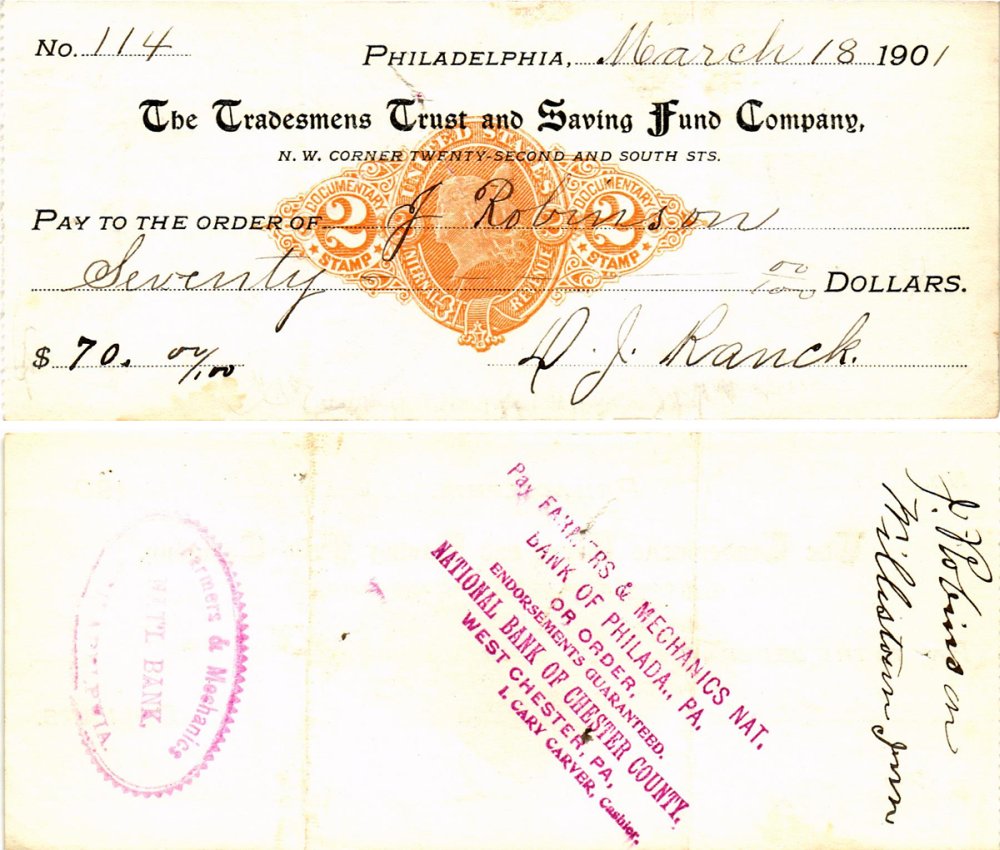 No. 114
PHILADELPHIA, March 18 1901
The Tradesmens Trust and Saving Fund Company,
N. W. CORNER TWENTY-SECOND AND SOUTH STS.
UNITED STATES
INTERNAL REVENUE
DOCUMENTARY
2
STAMP
DOCUMENTARY
2
STAMP
PAY TO THE ORDER OF J Robinson
Seventy 00/100 DOLLARS.
$ 70. 00/100
D. J. Ranck.
Farmers & Mechanics
NAT'L BANK
Pay FARMERS & MECHANICS NAT.
BANK OF PHILADA., PA.
OR ORDER,
ENDORSEMENTS GUARANTEED.
NATIONAL BANK OF CHESTER COUNTY,
WEST CHESTER, PA,
I. CARY CARVER, Cashier.
J. Robinson
Willistown Inn